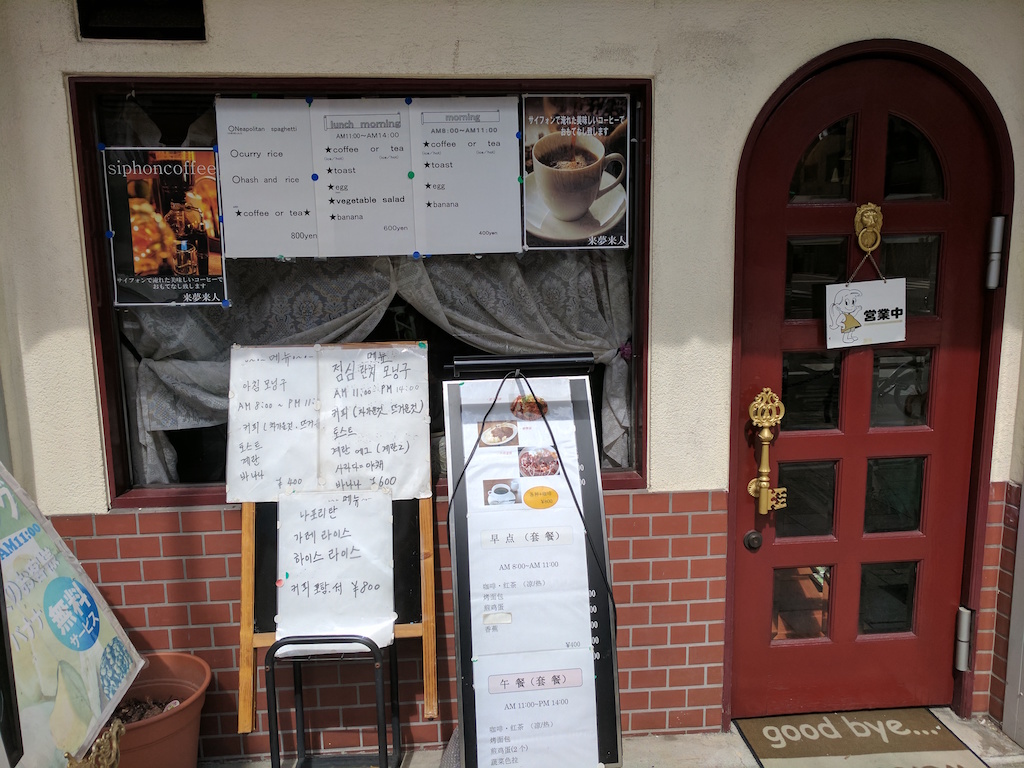 siphoncoffee
サイフォンで淹れた美味しいコーヒーで
おもてなし致します
来夢来人
○Neapolitan spaghetti
○curry rice
○hash and rice
★coffee or tea★
800yen
lunch morning
AM11:00~AM14:00
★coffee or tea
★toast
★egg
★vegetable salad
★banana
600yen
morning
AM8:00~AM11:00
★coffee or tea
★toast
★egg
★banana
400yen
サイフォンで淹れた美味しいコーヒーで
おもてなし致します
来夢来人
営業中
메뉴
아침 모닝구
AM 8:00 ~ PM 11:
토스트
계란
바나나
¥400
메뉴
점심 런치 모닝구
AM 11:00~PM 14:00
커피 (차가운것, 뜨거운것)
토스트
계란 에그 (계란2)
¥600
메뉴
나포리탄
카레 라이스
하이스 라이스
¥800
早点（套餐）
AM 8:00~AM 11:00
咖啡・红茶（凉/热）
烤面包
煎鸡蛋
香蕉
¥400
午餐（套餐）
AM 11:00~PM 14:00
咖啡・红茶（凉/热）
烤面包
煎鸡蛋(2个)
蔬菜色拉
AM11:00
無料
サービス
good bye...